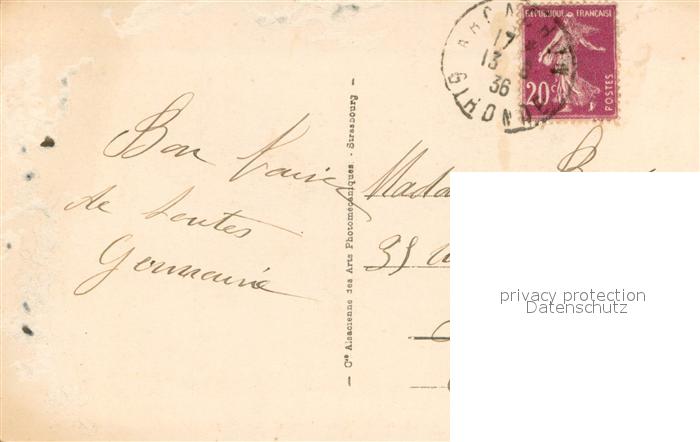 RÉPUBLIQUE FRANÇAISE
20c
POSTES
ARCACHON
17
13
36
GIRONDE
Bon baiser
de toutes
Germaine
Cie Alsacienne des Arts Photomécaniques - Strasbourg
Mada
35
privacy protection
Datenschutz